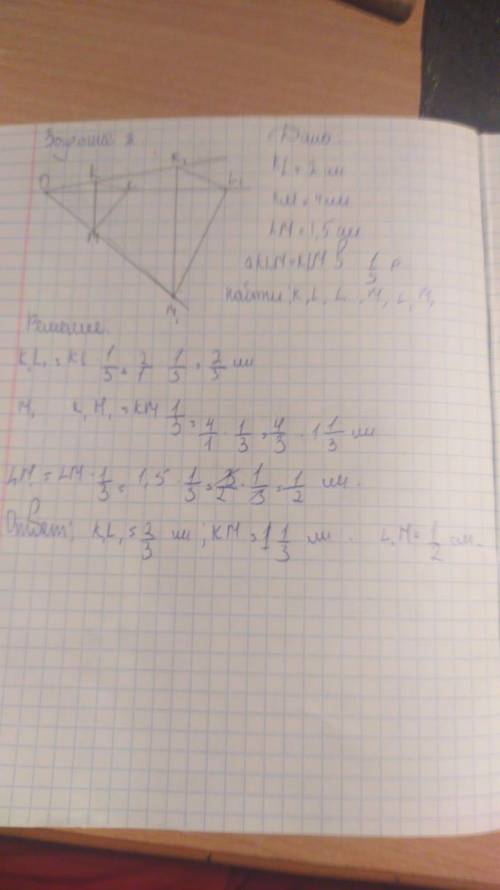 Задача 2
Дано:
KL = 2 см
KM = 4 см
LM = 1,5 см
1/3
найти K₁L₁ L₁M₁
O L K K₁ L₁
M
M₁
Решение.
K₁L₁ = KL 1/3 = 2/1 · 1/3 = 2/3 см
M₁ K₁M₁ = KM 1/3 = 4/1 · 1/3 = 4/3 · 1 1/3 см
LM = LM · 1/3 = 1,5 · 1/3 = 3/2 · 1/3 = 1/2 см.
Ответ: K₁L₁ = 2/3 см; KM = 1 1/3 см. L₁M = 1/2 см.